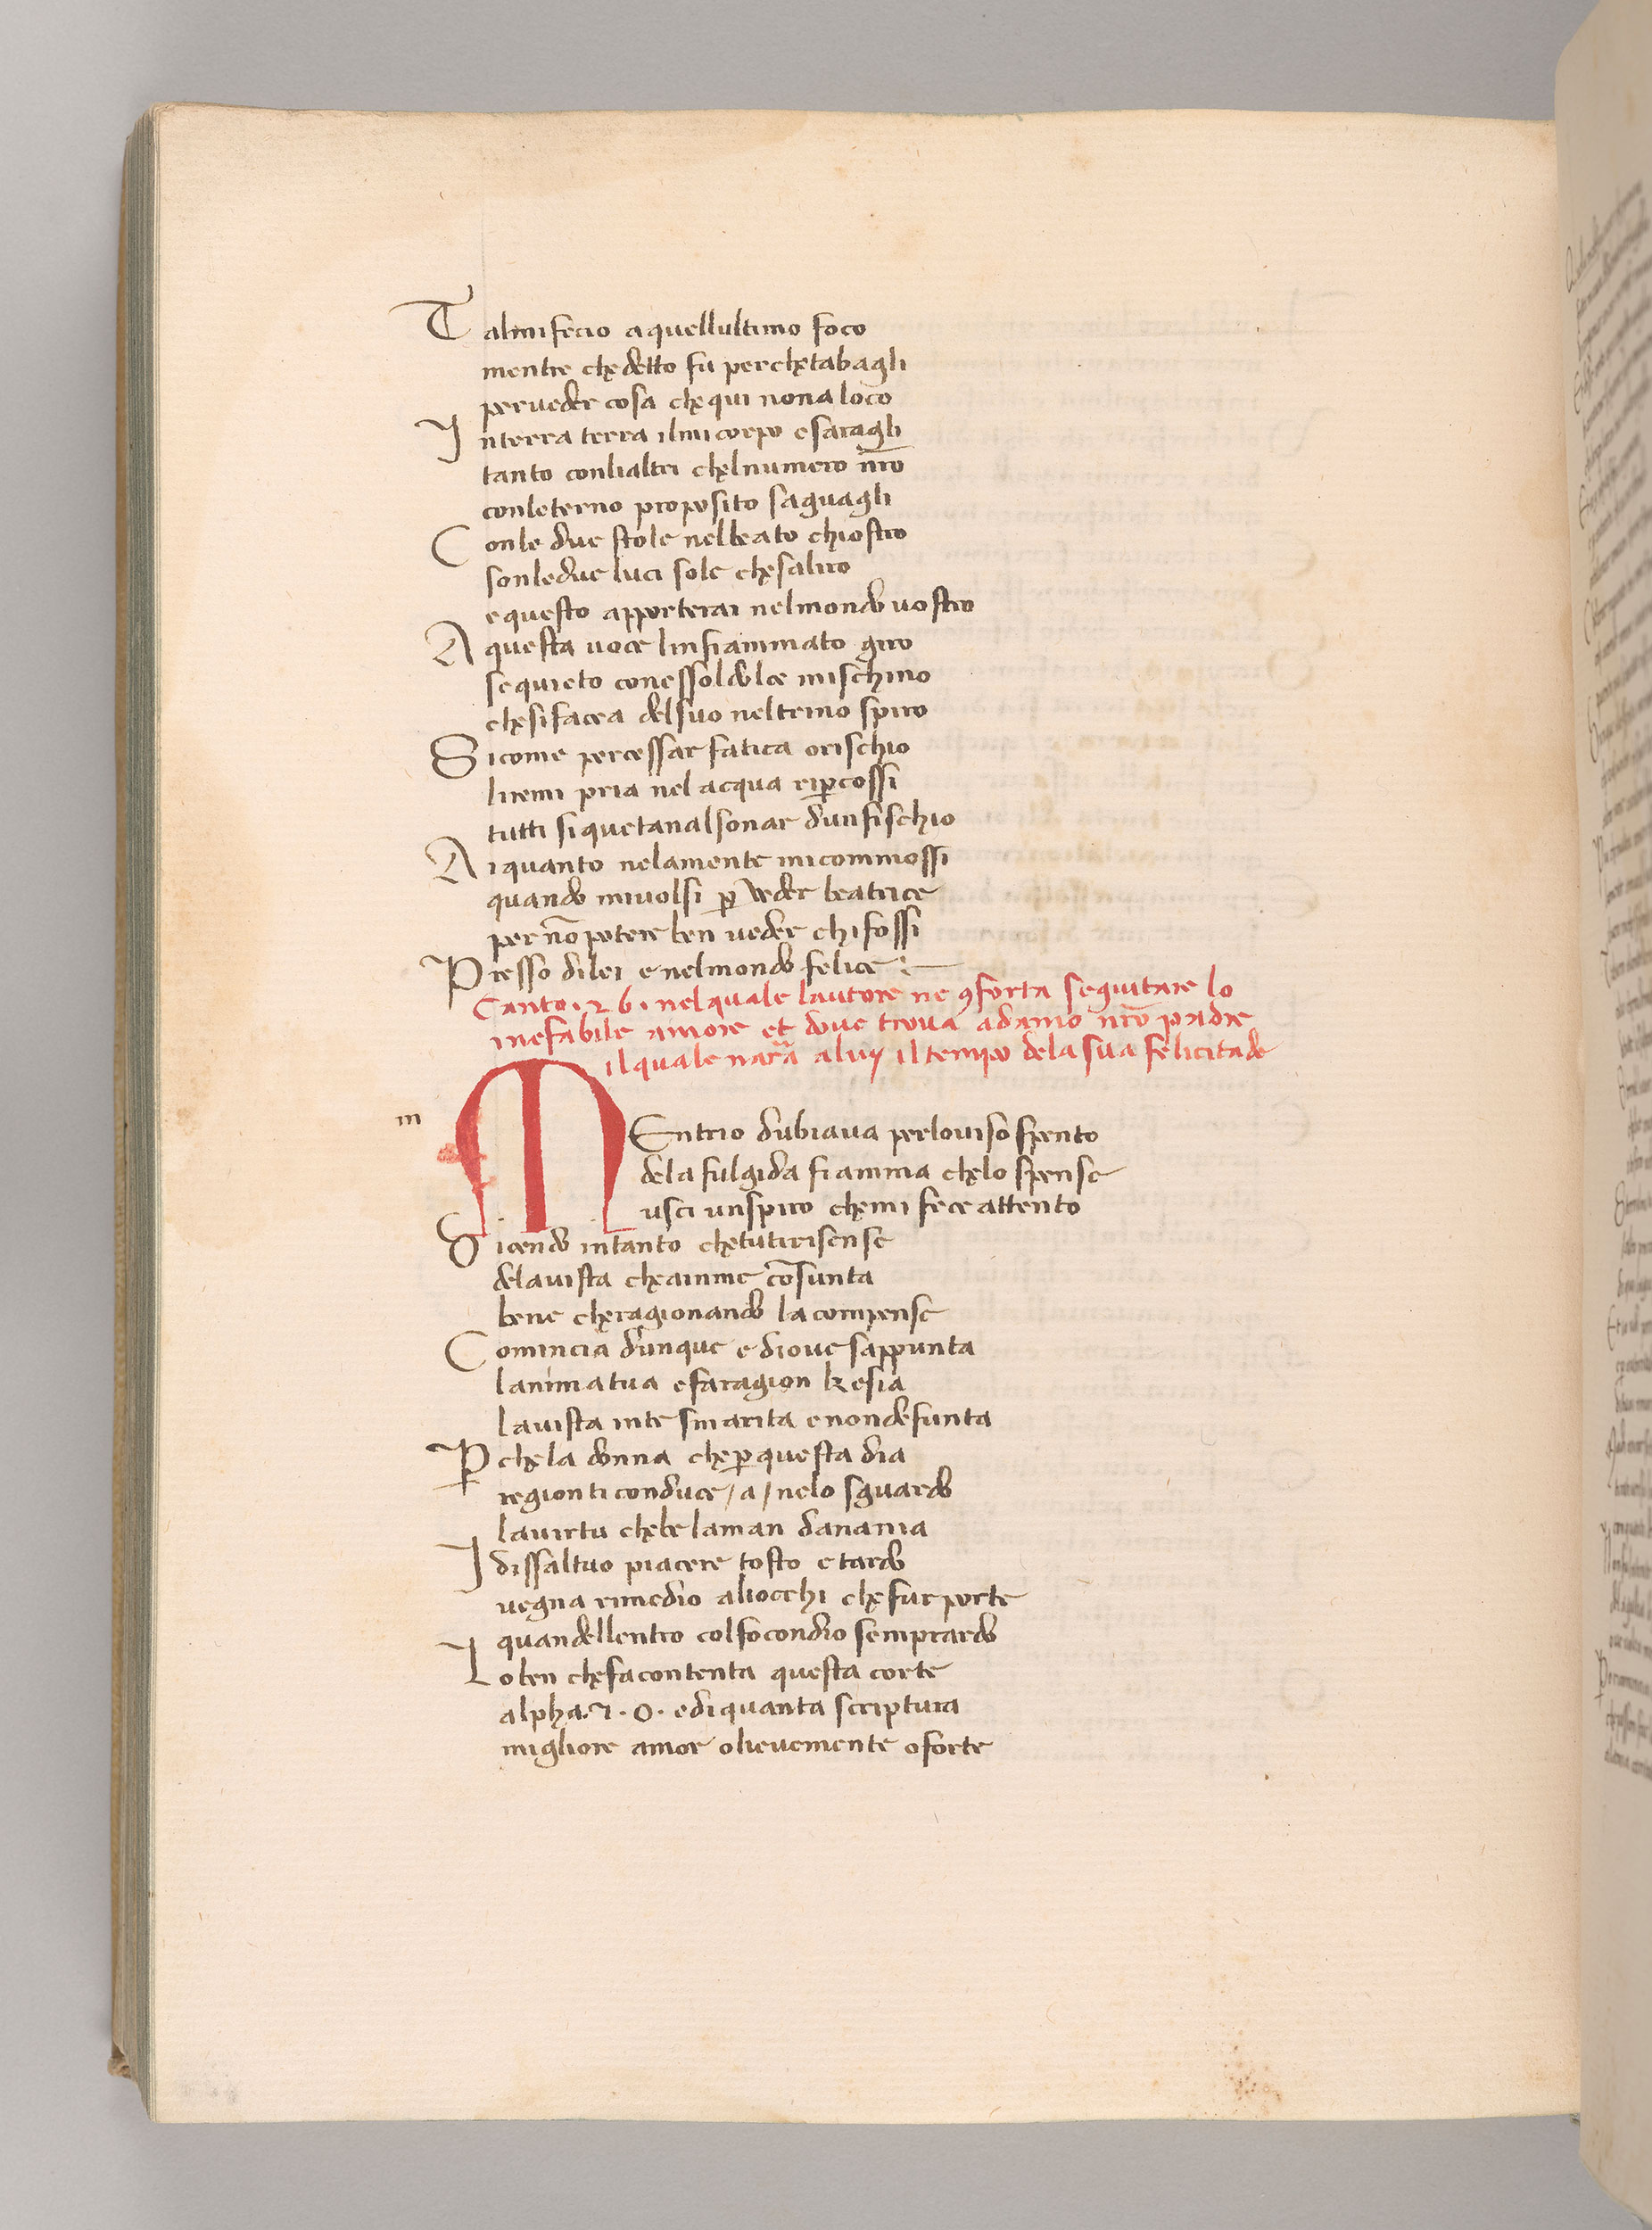 Talmifecio aquellultimo foco
mentre chedetto fu perchetabagli
perueder cosa chequi nona loco
Interra terra ilmi corpo esaragli
tanto conlialtri chelnumero nr̄o
conleterno proposito saguagli
Conle due stole nelbeato chiostro
sonledue luci sole chesaliro
equesto apporterai nelmondo uostro
Aquesta uoce linfiammato giro
sequieto conessoldolce mischino
chesifacea delsuo neltrino spiro
Sicome percessar fatica orischio
liremi pria nel acqua rip̄cossi
tutti siquetanalsonar dunfischio
Aiquanto nelamente micommossi
quando miuolsi p̱ ueder beatrice
per nō potere ben ueder chifossi
Presso dilei enelmondo felice :—
Canto .26. nelquale lautore ne ꝯforta seguitare lo
inefabile amore et doue troua adamo nr̄o padre
ilquale nara aluy iltempo dela sua felicitade
m
MEntrio dubiaua perlouiso spento
dela fulgida fiamma chelo spense
usci unspiro chemi fece attento
Dicendo intanto chetutirisense
delauista cheaime cōsunta
bene cheragionando la compense
Comincia dunque e dioue sappunta
lanima tua efaragion kesia
lauista inte smarita enondefunta
Ꝑchela donna cheꝑquesta dia
region ti conduce / a / nelo sguardo
lauirtu chebe laman danania
Idissaltuo piacere tosto etardo
uegna rimedio aliocchi chefur porte
quandellentro colfocondio semprardo
Loben chefacontenta questa corte
alpha .7. o. ediquanta scriptura
migliore amor olieuemente oforte